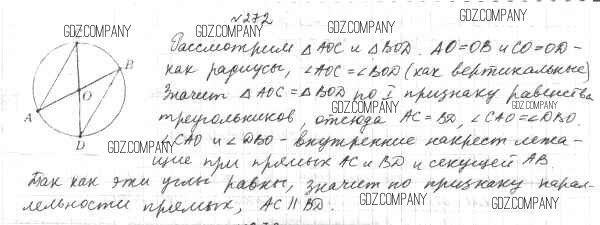 №272
GDZ.COMPANY
GDZ.COMPANY
GDZ.COMPANY
Рассмотрим △ AOC и △ BOD. AO=OB и CO=OD -
как радиусы, ∠AOC=∠BOD (как вертикальные)
GDZ.COMPANY
GDZ.COMPANY
Значит △ AOC = △ BOD по I признаку равенства
GDZ.COMPANY
треугольников, отсюда AC=BD, ∠CAO=∠DBO.
∠CAO и ∠DBO - внутренние накрест лежа-
GDZ.COMPANY
щие при прямых AC и BD и секущей AB.
Так как эти углы равны, значит по признаку парал-
лельности прямых, AC || BD.
GDZ.COMPANY
GDZ.COMPANY
B
O
A
D